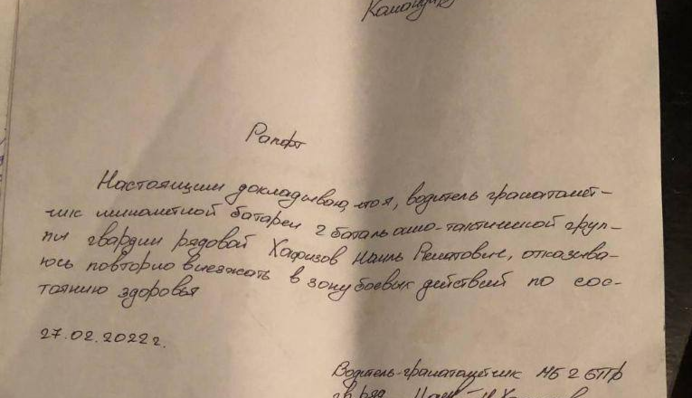 Командиру
Рапорт
Настоящим докладываю, что я, водитель гранатомёт-
чик миномётной батареи 2 батальонно-тактической груп-
пы гвардии рядовой Хафизов Наиль Ренатович, отказыва-
юсь повторно выезжать в зону боевых действий по сос-
тоянию здоровья
27.02.2022г.
Водитель-гранатомётчик МБ 2 БТГр
гв. ряд.